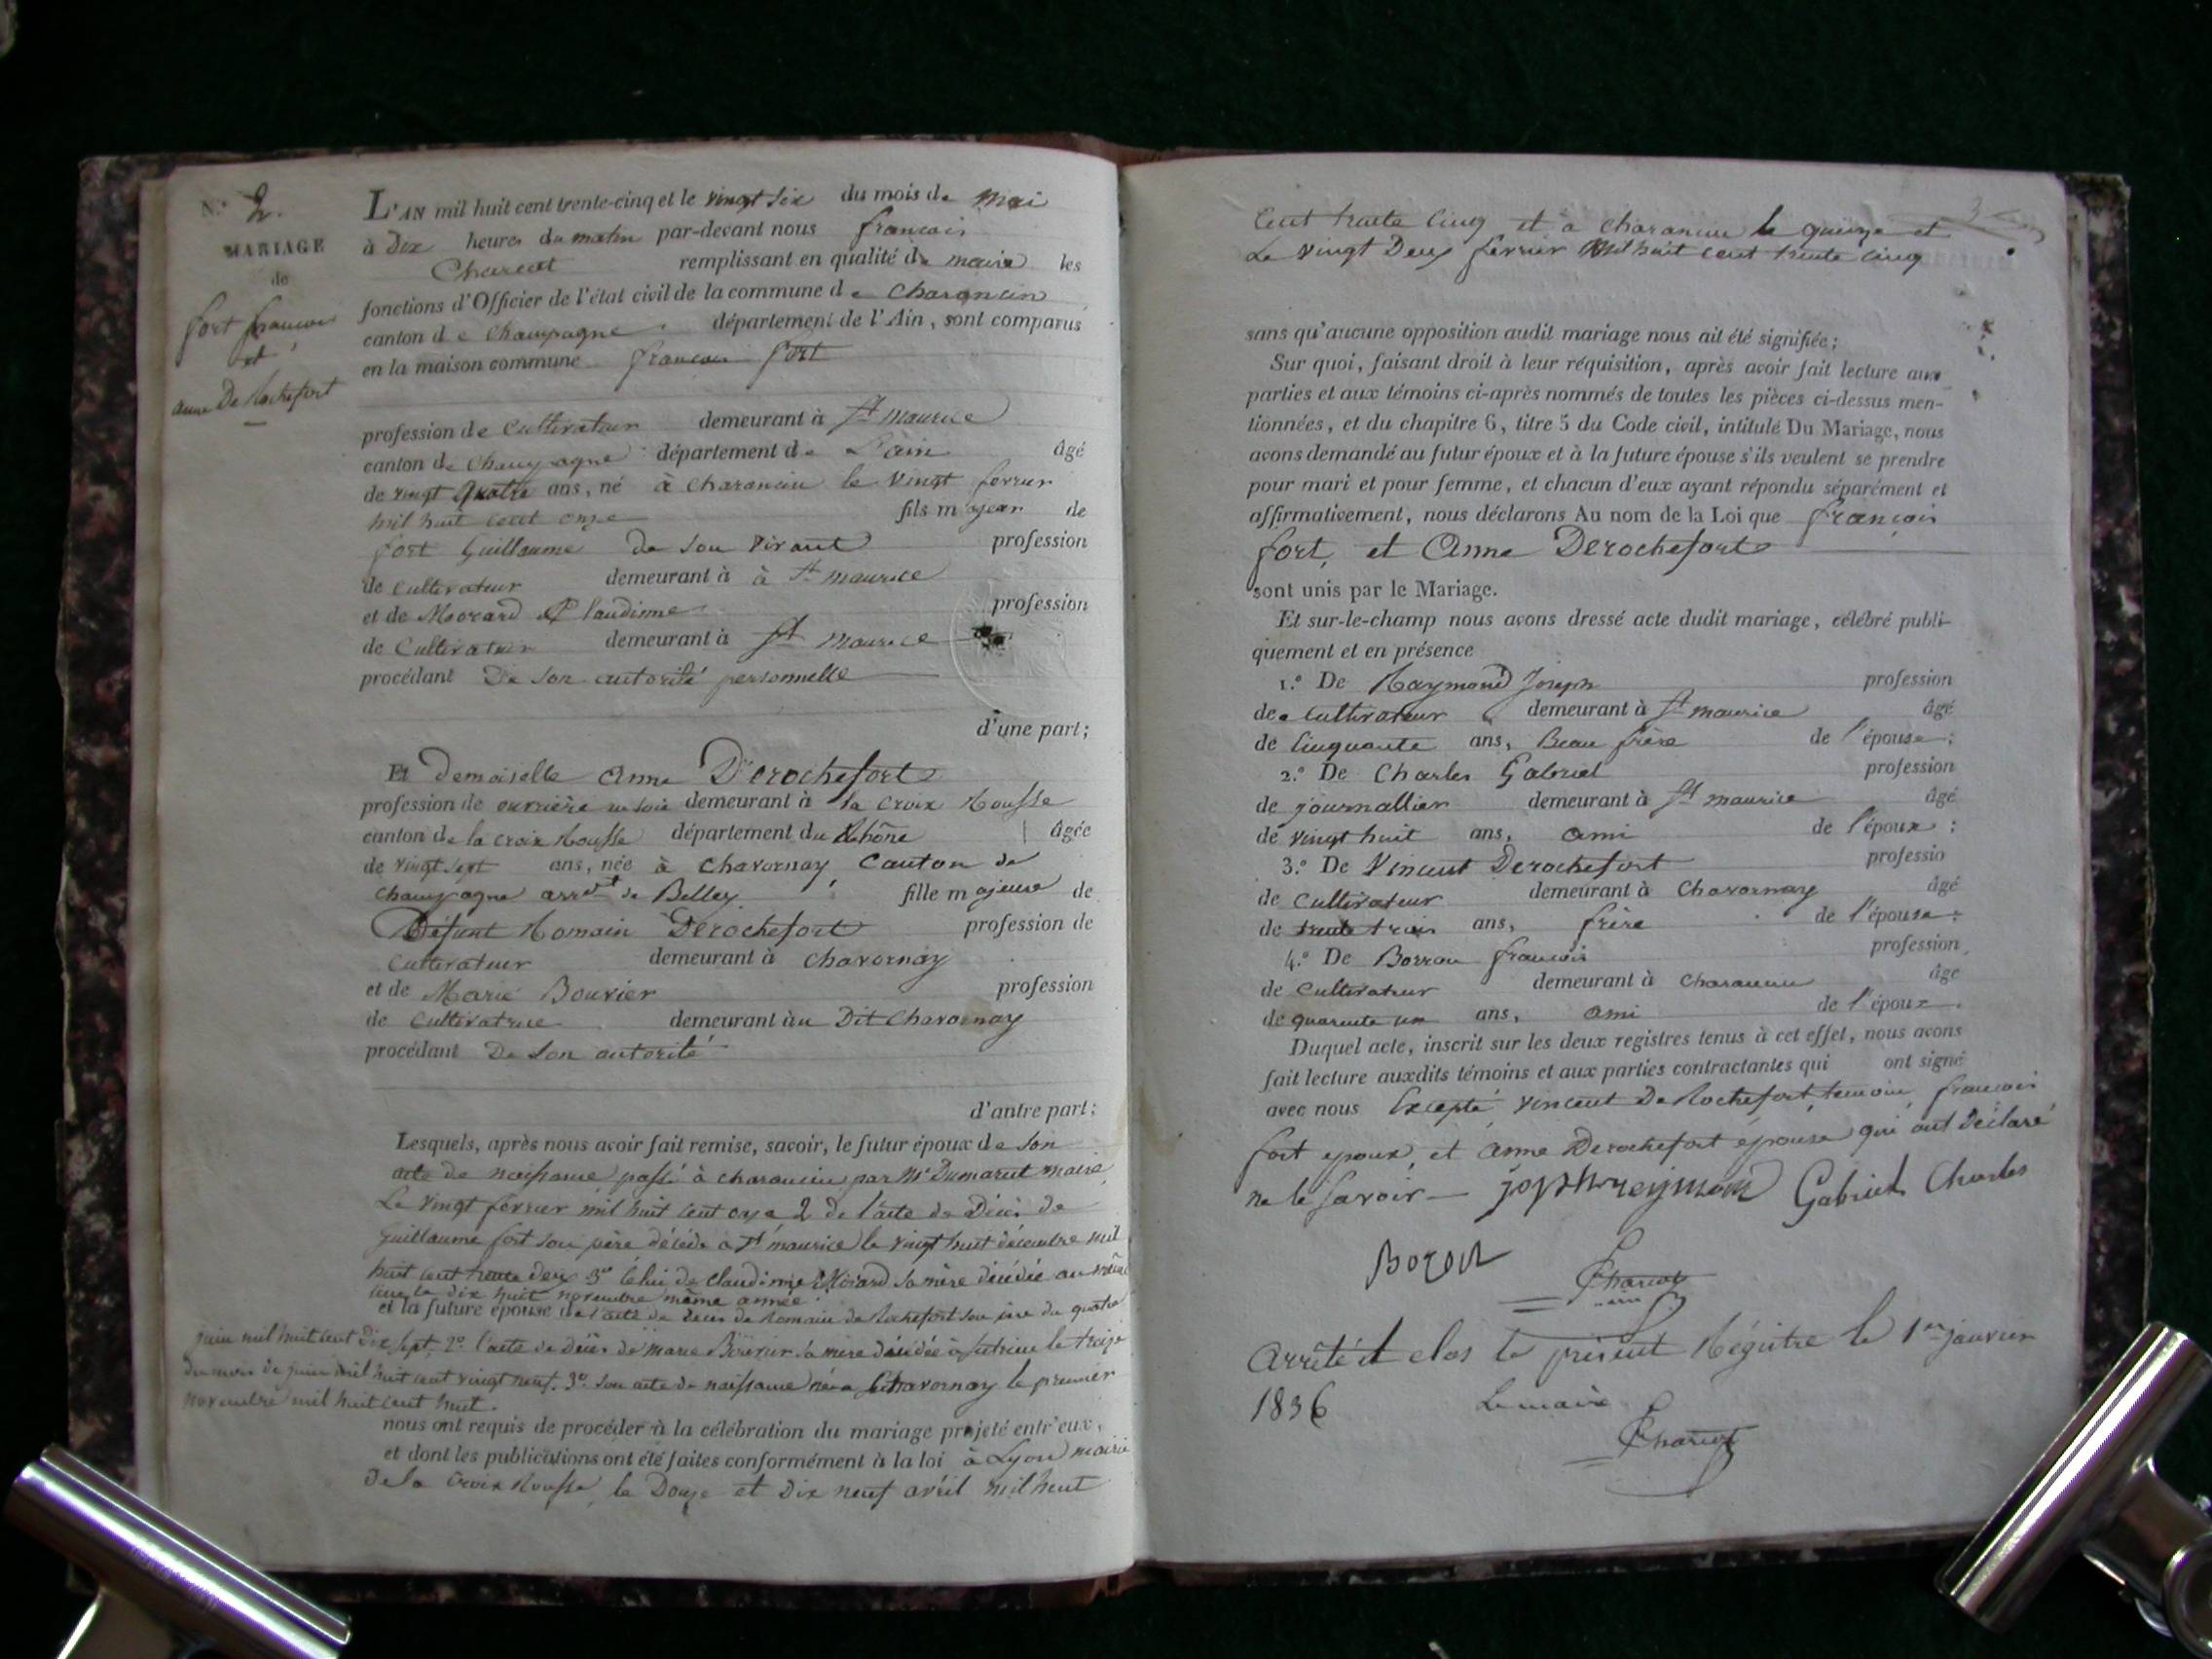 N.° 2.
MARIAGE
de
fort francois
et
anne De Rochefort
L'AN mil huit cent trente-cinq et le vingt six du mois de mai
à dix heures du matin par-devant nous francois
Charcot remplissant en qualité de maire les
fonctions d'Officier de l'état civil de la commune de charancin
canton de champagne département de l'Ain, sont comparus
en la maison commune francois fort
profession de cultivateur demeurant à St maurice
canton de champagne département de L'ain âgé
de vingt quatre ans, né à charancin le vingt fevrier
mil huit cent onze fils majeur de
fort Guillaume de son vivant profession
de cultivateur demeurant à à St maurice
et de Morard Claudinne profession
de Cultivateur demeurant à St maurice
procédant De son autorité personnelle
d'une part;
Et Demoiselle Anne Derochefort
profession de ouvrière en soie demeurant à la croix Rousse
canton de la croix Rousse département du Rhône âgée
de vingt sept ans, née à chavornay Canton de
champagne arrdt de Belley fille majeure de
Défunt Romain Derochefort profession de
cultivateur demeurant à chavornay
et de Marie Bouvier profession
de cultivatrice demeurant au Dit Chavornay
procédant De son autorité
d'autre part;
Lesquels, après nous avoir fait remise, savoir, le futur époux de son
acte de naissance passé à charancin par Mr Dumarest maire
Le vingt fevrier mil huit cent onze 2 de l'acte de Décès de
Guillaume fort son père décédé à St maurice le vingt huit décembre mil
huit cent trente deux 3° celui de claudinne Morard sa mère décédée au même
lieu le dix huit novembre même année
et la future épouse de l'acte de décès de Romain de Rochefort son père du quatre
juin mil huit cent dix sept, 2° l'acte de décès de marie Bouvier sa mère décédée à le treize
du mois de juin mil huit cent vingt neuf. 3° son acte de naissance née a Chavornay le premier
novembre mil huit cent huit.
nous ont requis de procéder à la célébration du mariage projeté entr'eux,
et dont les publications ont été faites conformément à la loi à Lyon mairie
De la Croix Rousse, le Douze et Dix neuf avril mil huit
3
Cent trente Cinq et a charancin le quinze et
Le vingt Deux fevrier Mil huit cent trente cinq
sans qu'aucune opposition audit mariage nous ait été signifiée;
Sur quoi, faisant droit à leur réquisition, après avoir fait lecture aux
parties et aux témoins ci-après nommés de toutes les pièces ci-dessus men-
tionnées, et du chapitre 6, titre 5 du Code civil, intitulé Du Mariage, nous
avons demandé au futur époux et à la future épouse s'ils veulent se prendre
pour mari et pour femme, et chacun d'eux ayant répondu séparément et
affirmativement, nous déclarons Au nom de la Loi que françois
fort, et Anne Derochefort
sont unis par le Mariage.
Et sur-le-champ nous avons dressé acte dudit mariage, célébré publi-
quement et en présence
1.° De Raymond Joseph profession
de cultivateur demeurant à St maurice âgé
de Cinquante ans, Beau frère de l'épouse;
2.° De Charles Gabriel profession
de journallier demeurant à St maurice âgé
de vingt huit ans, ami de l'époux;
3.° De Vincent Derochefort professio
de cultivateur demeurant à Chavornay âgé
de trente trois ans, frère de l'épouse;
4.° De Borron francois profession
de cultivateur demeurant à charancin âgé
de quarente un ans, ami de l'époux.
Duquel acte, inscrit sur les deux registres tenus à cet effet, nous avons
fait lecture auxdits témoins et aux parties contractantes qui ont signé
avec nous Excepté vincent DeRochefort, temoin, francois
fort epoux, et Anne Derochefort épouse qui ont déclaré
ne le savoir Gabriel Charles
Charcot
Arrêté et clos le présent Régistre le 1er janvier
1836 Le maire
Charcot